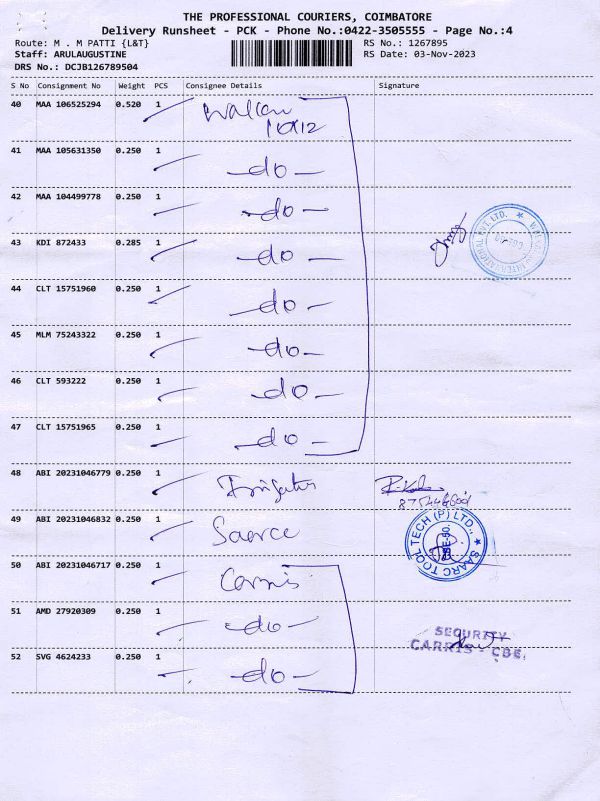 THE PROFESSIONAL COURIERS, COIMBATORE
Delivery Runsheet - PCK - Phone No.:0422-3505555 - Page No.:4
Route: M . M PATTI {L&T} RS No.: 1267895
Staff: ARULAUGUSTINE RS Date: 03-Nov-2023
DRS No.: DCJB126789504
S No Consignment No Weight PCS Consignee Details Signature
40 MAA 106525294 0.520 1
41 MAA 105631350 0.250 1 -do-
42 MAA 104499778 0.250 1 -do-
43 KDI 872433 0.285 1 -do-
44 CLT 15751960 0.250 1 -do-
45 MLM 75243322 0.250 1 -do-
46 CLT 593222 0.250 1 -do-
47 CLT 15751965 0.250 1 -do-
48 ABI 20231046779 0.250 1
49 ABI 20231046832 0.250 1 Saarce
SAARC TOOL TECH (P) LTD.,
50 ABI 20231046717 0.250 1 Carris
51 AMD 27920309 0.250 1 -do-
SECURITY
CARRIS - CBE.
52 SVG 4624233 0.250 1 -do-